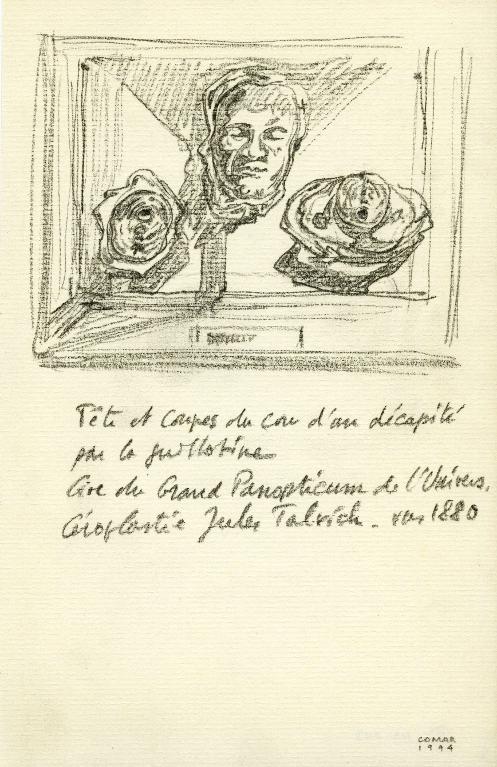 Tête et coupes du cou d'un décapité
par la guillotine
Cire du Grand Panopticum de l'Univers.
Céroplastie Jules Talrich - vers 1880
COMAR
1994